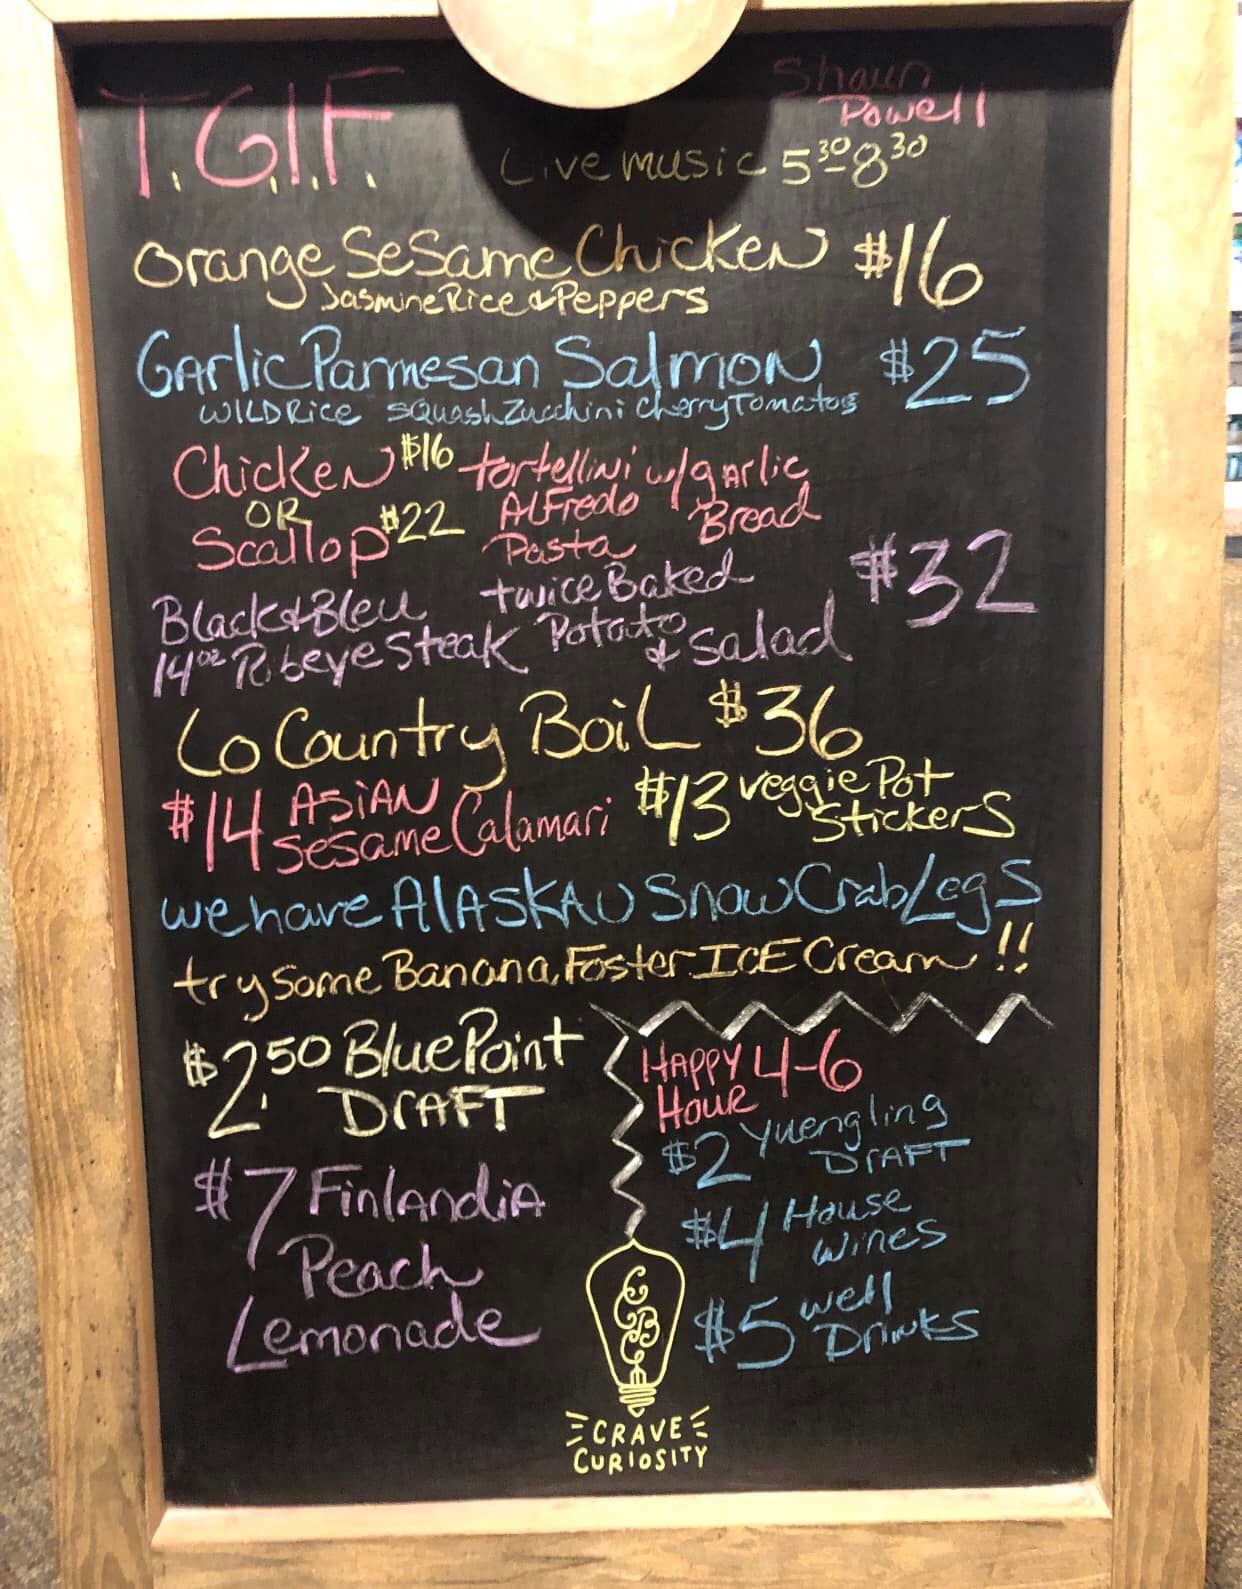 T.G.I.F.
Shaun
Powell
Live music 5³⁰-8³⁰
Orange Sesame Chicken $16
Jasmine Rice & Peppers
Garlic Parmesan Salmon $25
Wild Rice Squash Zucchini Cherry Tomatos
Chicken $16 tortellini w/ garlic
OR Alfredo Bread
Scallop $22 Pasta
Black & Bleu twice Baked $32
14oz Ribeye Steak Potato & salad
Lo Country Boil $36
$14 Asian Sesame Calamari
$13 veggie Pot Stickers
we have Alaskan Snow Crab Legs
try some Banana Foster ICE Cream !!
$2.50 Blue Point
Draft
$7 Finlandia
Peach
Lemonade
Happy 4-6
Hour
$2 Yuengling
Draft
$4 House
Wines
$5 well
Drinks
CBC
CRAVE
CURIOSITY